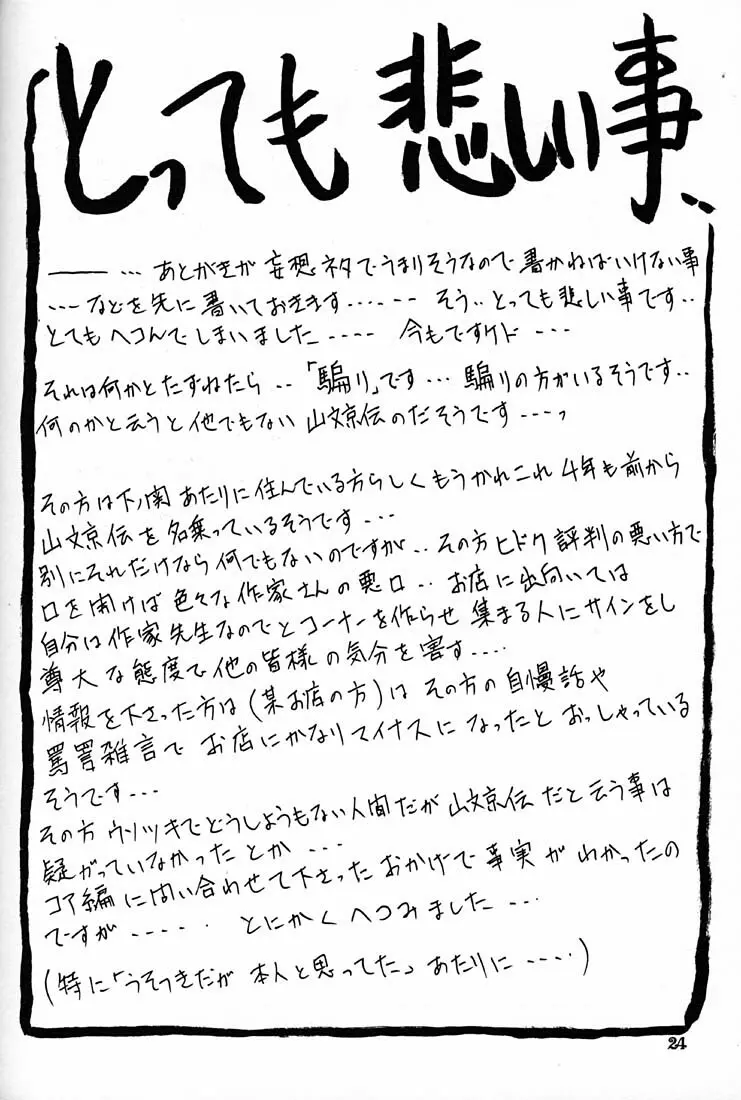 とっても悲しい事‥
―― … あとがきが妄想ネタでうまりそうなので書かねばいけない事
‥‥などを先に書いておきます‥‥‥ そう‥とっても悲しい事です‥
とてもヘコんでしまいました‥‥‥ 今もですケド ‥‥
それは何かとたずねたら‥「騙り」です…騙りの方がいるそうです‥
何のかと云うと他でもない山文京伝のだそうです‥‥っ
その方は下ノ関あたりに住んでいる方らしくもうかれこれ4年も前から
山文京伝を名乗っているそうです‥‥
別にそれだけなら何でもないのですが‥その方ヒドク評判の悪い方で
口を開けば色々な作家さんの悪口‥お店に出向いては
自分は作家先生なのでとコーナーを作らせ集まる人にサインをし
尊大な態度で他の皆様の気分を害す‥‥
情報を下さった方は(某お店の方)はその方の自慢話や
罵詈雑言でお店にかなりマイナスになったとおっしゃっている
そうです‥‥
その方ウソツキでどうしようもない人間だが山文京伝だと云う事は
疑がっていなかったとか‥‥
コア編に問い合わせて下さったおかげで事実がわかったの
ですが‥‥‥ とにかくへこみました‥‥
(特に「うそつきだが本人と思ってた」あたりに‥‥)
24